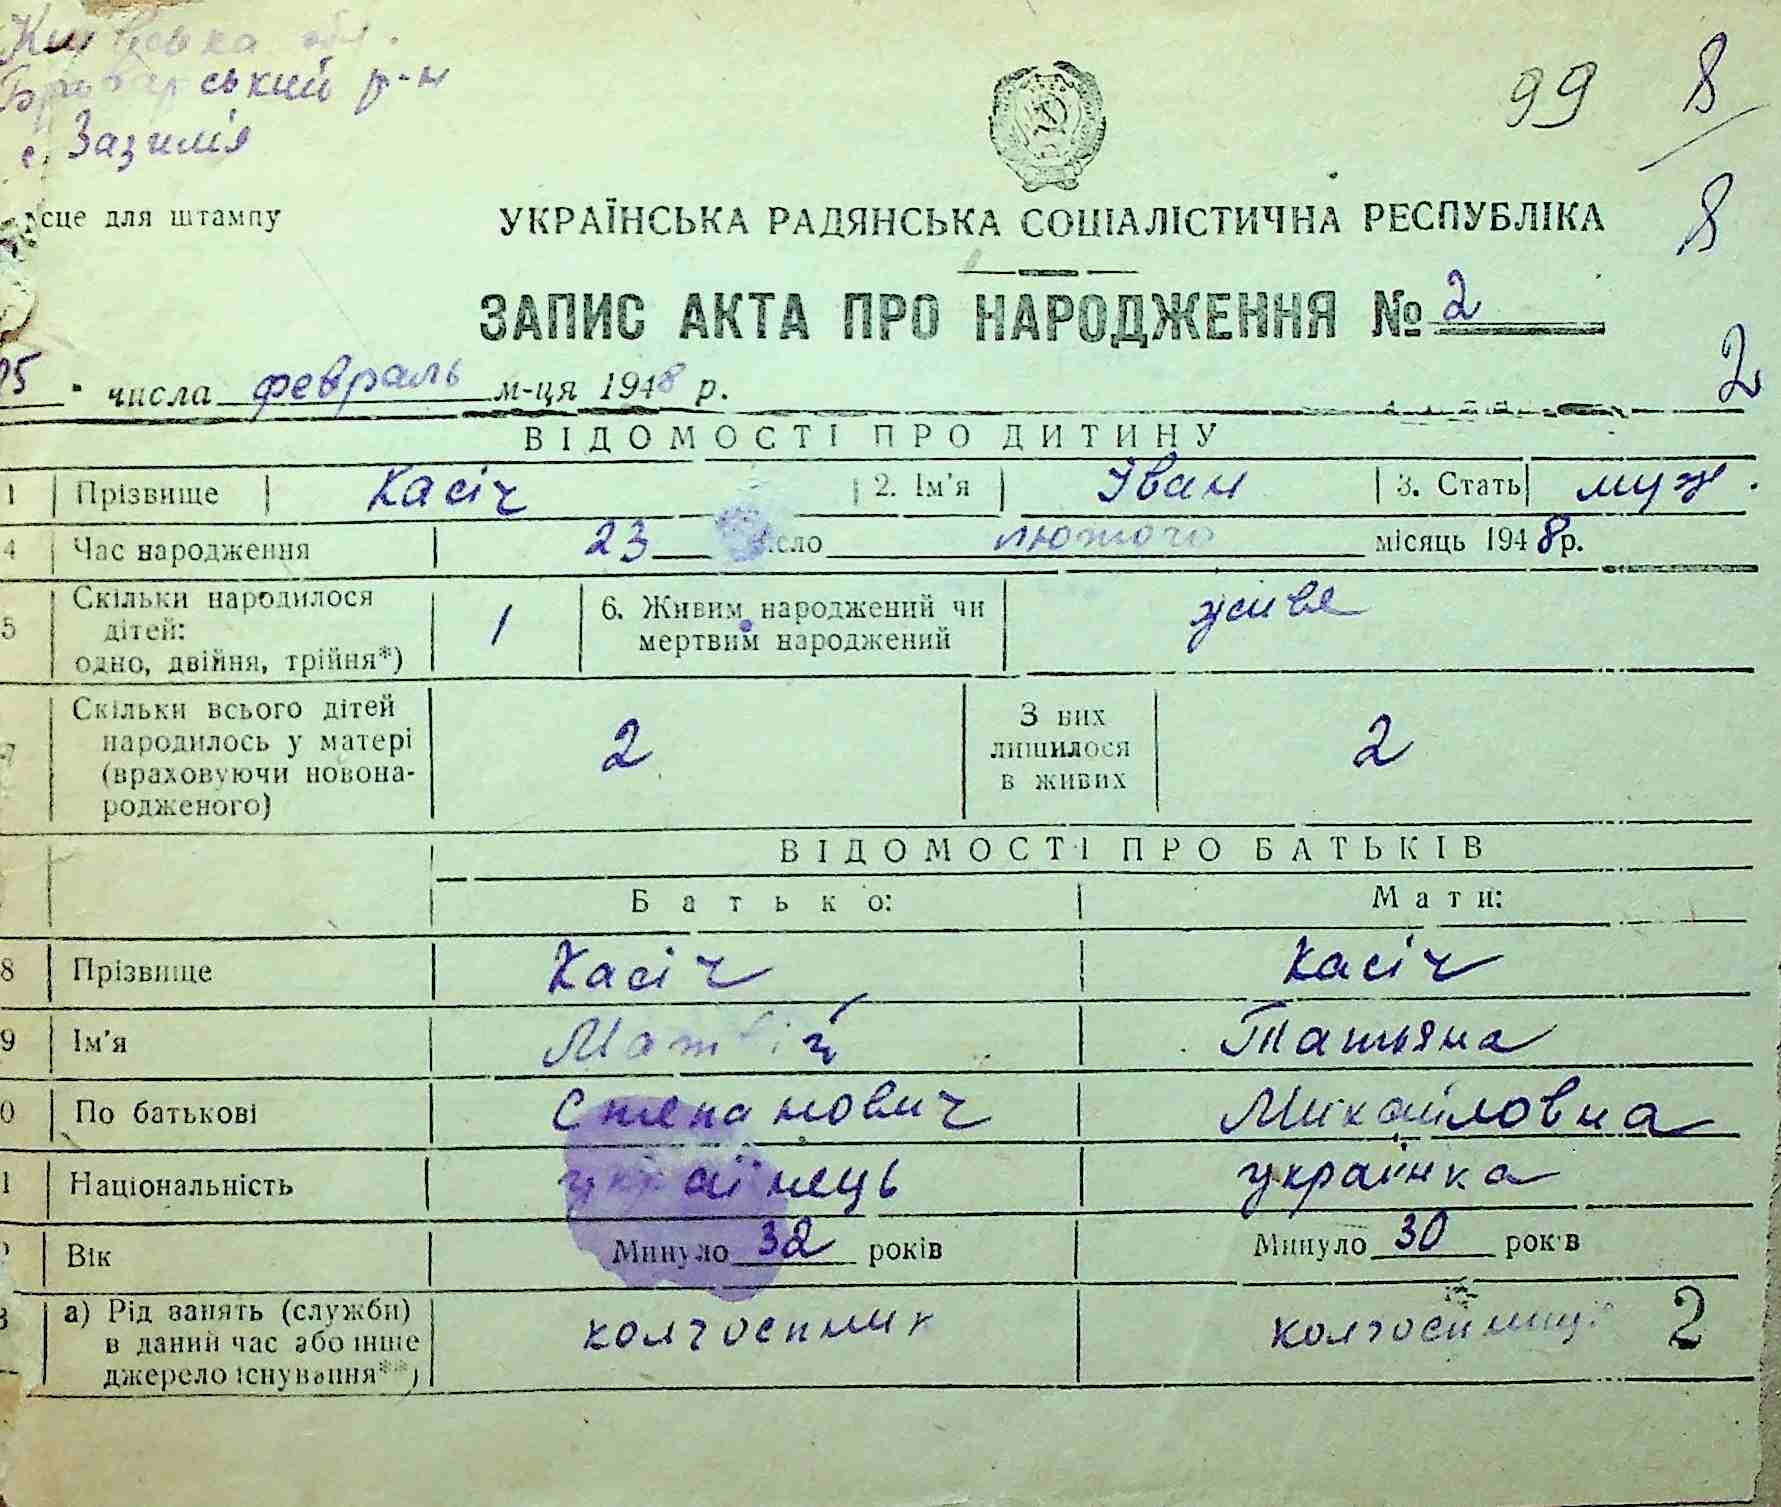 Київська обл.
Броварський р-н
с. Зазимія
99 8
8
місце для штампу
УКРАЇНСЬКА РАДЯНСЬКА СОЦІАЛІСТИЧНА РЕСПУБЛІКА
ЗАПИС АКТА ПРО НАРОДЖЕННЯ № 2
25 " числа февраль м-ця 1948 р.
2
ВІДОМОСТІ ПРО ДИТИНУ
1 Прізвище Касіч 2. Ім'я Іван 3. Стать муж.
4 Час народження 23 число лютого місяць 1948 р.
5 Скільки народилося дітей: одно, двійня, трійня*) 1 6. Живим народжений чи мертвим народжений живе
7 Скільки всього дітей народилось у матері (враховуючи новонародженого) 2 З них лишилося в живих 2
ВІДОМОСТІ ПРО БАТЬКІВ
Батько: Мати:
8 Прізвище Касіч Касіч
9 Ім'я Матвій Татьяна
0 По батькові Степанович Михайловна
1 Національність українець українка
Вік Минуло 32 років Минуло 30 років
3 а) Рід занять (служби) в даний час або інше джерело існування**) колгоспник колгоспниця 2